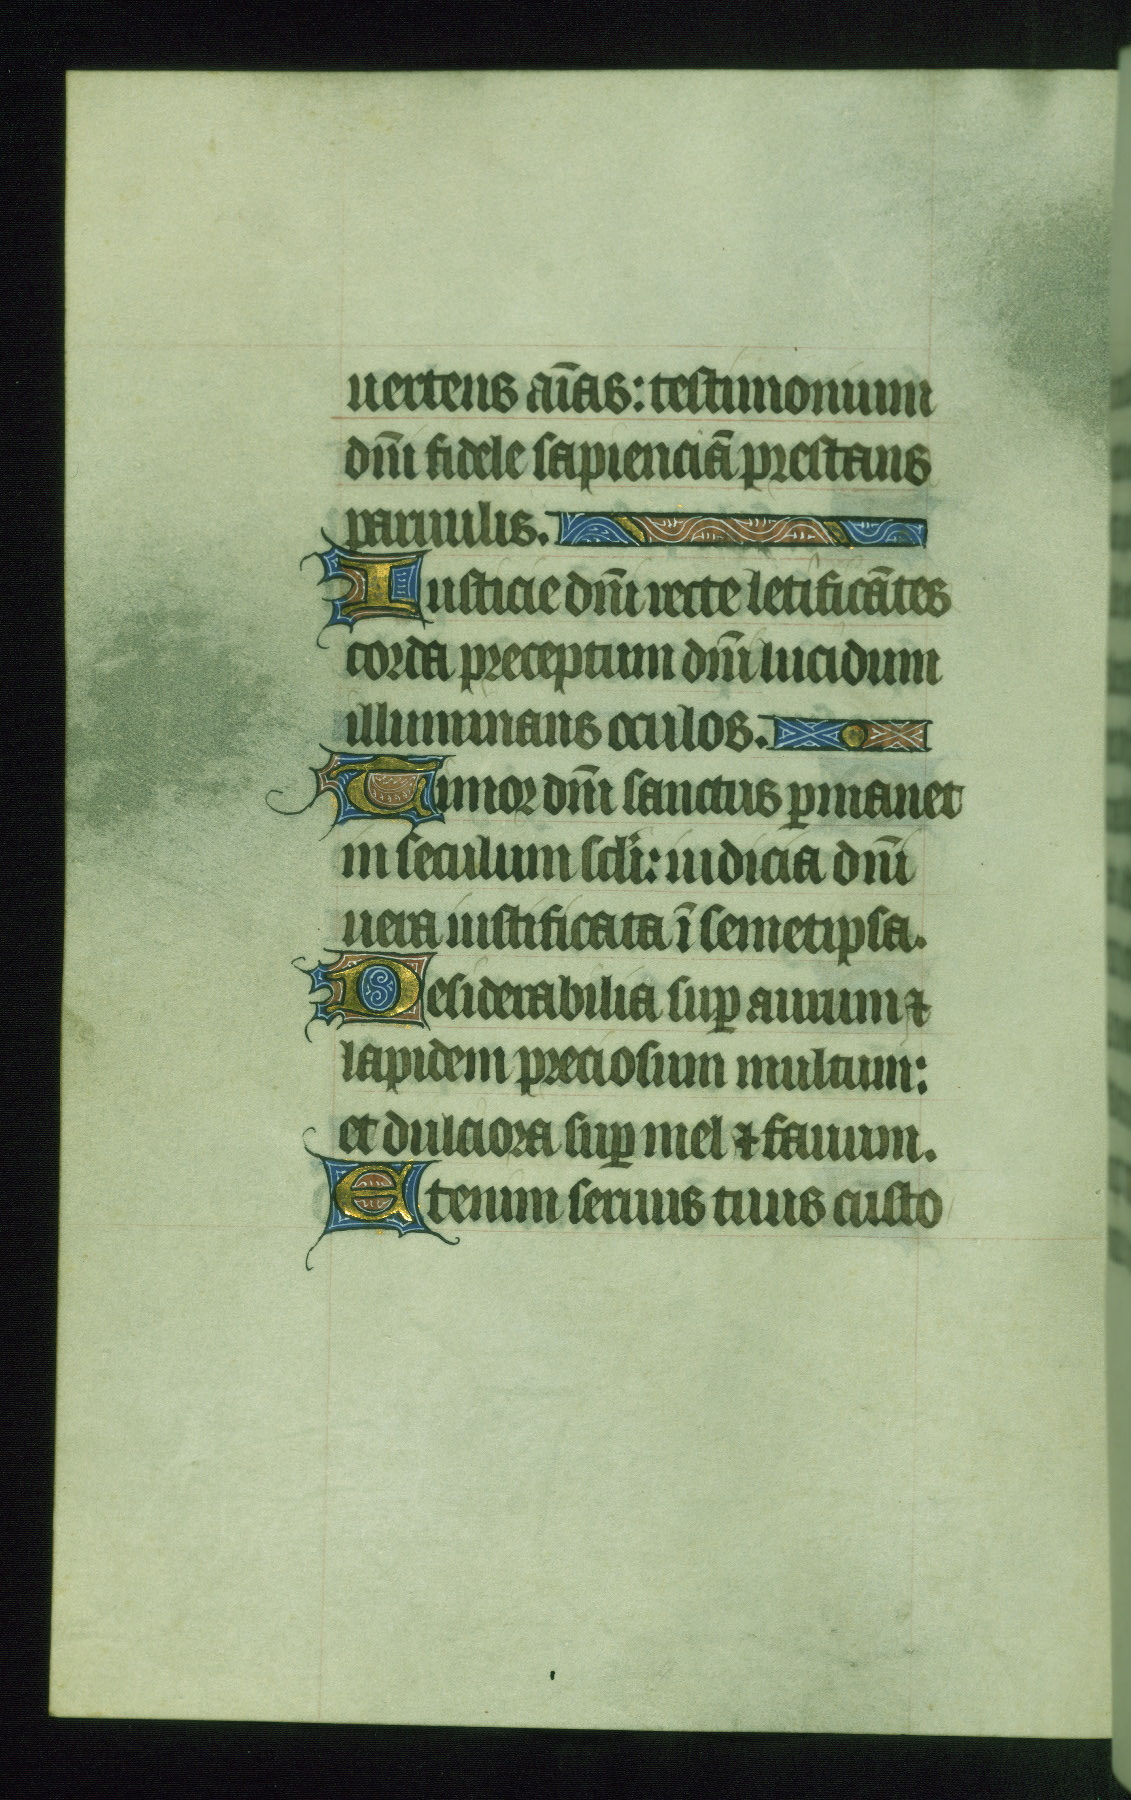 uertens aīas: testimonium
dn̄i fidele sapienciā prestans
paruulis.
Iusticie dn̄i recte letificātes
corda preceptum dn̄i lucidum
illuminans oculos.
Timor dn̄i sanctus ꝑmanet
in seculum scl̄i: iudicia dn̄i
uera iustificata ī semetipsa.
Desiderabilia suꝑ aurum ⁊
lapidem preciosum multum:
et dulciora suꝑ mel ⁊ fauum.
Etenim seruus tuus custo